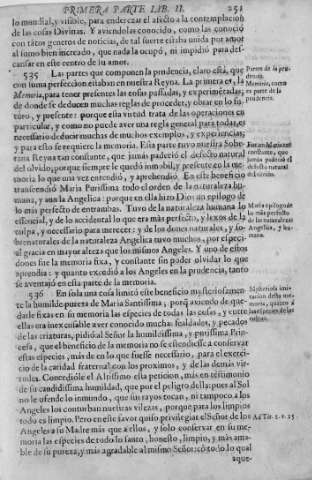 PRIMERA PARTE LIB. II. 251
lo mundial, y visible, para enderezar el afecto a la contemplacion
de las cosas Divinas. Y aviendolas conocido, como las conociò
con tãtos generos de noticias, de tal suerte estaba unida por amor
al sumo bien increado, que nada la ocupò, ni impidiò para des-
cansar en este centro de su amor.
535 Las partes que componen la prudencia, claro està, que
con suma perfeccion estaban en nuestra Reyna. La primera es, la
Memoria, para tener presentes las cosas passadas, y experimẽtadas;
de donde se deducen muchas reglas de proceder, y obrar en lo fu-
turo, y presente: porque esta virtud trata de las operaciones en
particular, y como no puede aver una regla general para todas, es
necessario deducir muchas de muchos exemplos, y experiencias;
y para esto se requiere la memoria. Esta parte tuvo nuestra Sobe-
rana Reyna tan constante, que jamàs padeciò el defecto natural
del olvido; porque siempre le quedò inmobil, y presente en la me-
moria lo que una vez entendiò, y aprehendiò. En este beneficio
transcendiò Maria Purissima todo el orden de la naturaleza hu-
mana, y aun la Angelica: porque en ella hizo Dios un epilogo de
lo mas perfecto de entrambas. Tuvo de la naturaleza humana lo
essencial, y de lo accidental lo que era màs perfecto, y lexos de la
culpa, y necessario para merecer: y de los dones naturales, y so-
brenaturales de la naturaleza Angelica tuvo muchos, por especi-
al gracia en mayor alteza que los mismos Angeles. Y uno de estos
dones fue la memoria fixa, y constante sin poder olvidar lo que
aprendia: y quanto excediò a los Angeles en la prudencia, tanto
se aventajò en esta parte de la memoria.
536 En sola una cosa limitò este beneficio mysteriosamen-
te la humilde pureza de Maria Santissima, porq̃ aviendo de que-
darle fixas en su memoria las especies de todas las cosas, y entre
ellas era inexcusable aver conocido muchas fealdades, y pecados
de las criaturas, pidiò al Señor la humilissima, y purissima Prin-
cesa, que el beneficio de la memoria no se estendiesse à conservar
estas especies, màs de en lo que fuesse necessario, para el exerci-
cio de la caridad fraternal con los proximos, y de las demàs vir-
tudes. Concediòle el Altissimo esta peticion, màs en testimonio
de su candidissima humildad, que por el peligro della: pues al Sol
no le ofende lo inmundo, que sus rayos tocan, ni tampoco a los
Angeles los conturban nuestras vilezas, porque para los limpios
todo es limpio. Pero en este favor quiso privilegiar el Señor de los
Angeles a su Madre màs que a ellos, y solo conservar en su me-
moria las especies de todo lo santo, honesto, limpio, y màs ama-
ble de su pureza, y màs agradable al mismo Señor: cõ todo lo qual
aque-
Partes de la pru-
dencia.
Memoria, como
es parte de la
prudencia.
Fue en Maria tan
constante, que
jamas padeciò el
defecto natural
del olvido.
Maria epilogo de
lo màs perfecto
de las naturalezas
Angelica, y hu-
mana.
Mysteriosa limi-
tacion desta me-
moria, quanto à
las especies de las
culpas.
Ad Tit. 1. v. 15